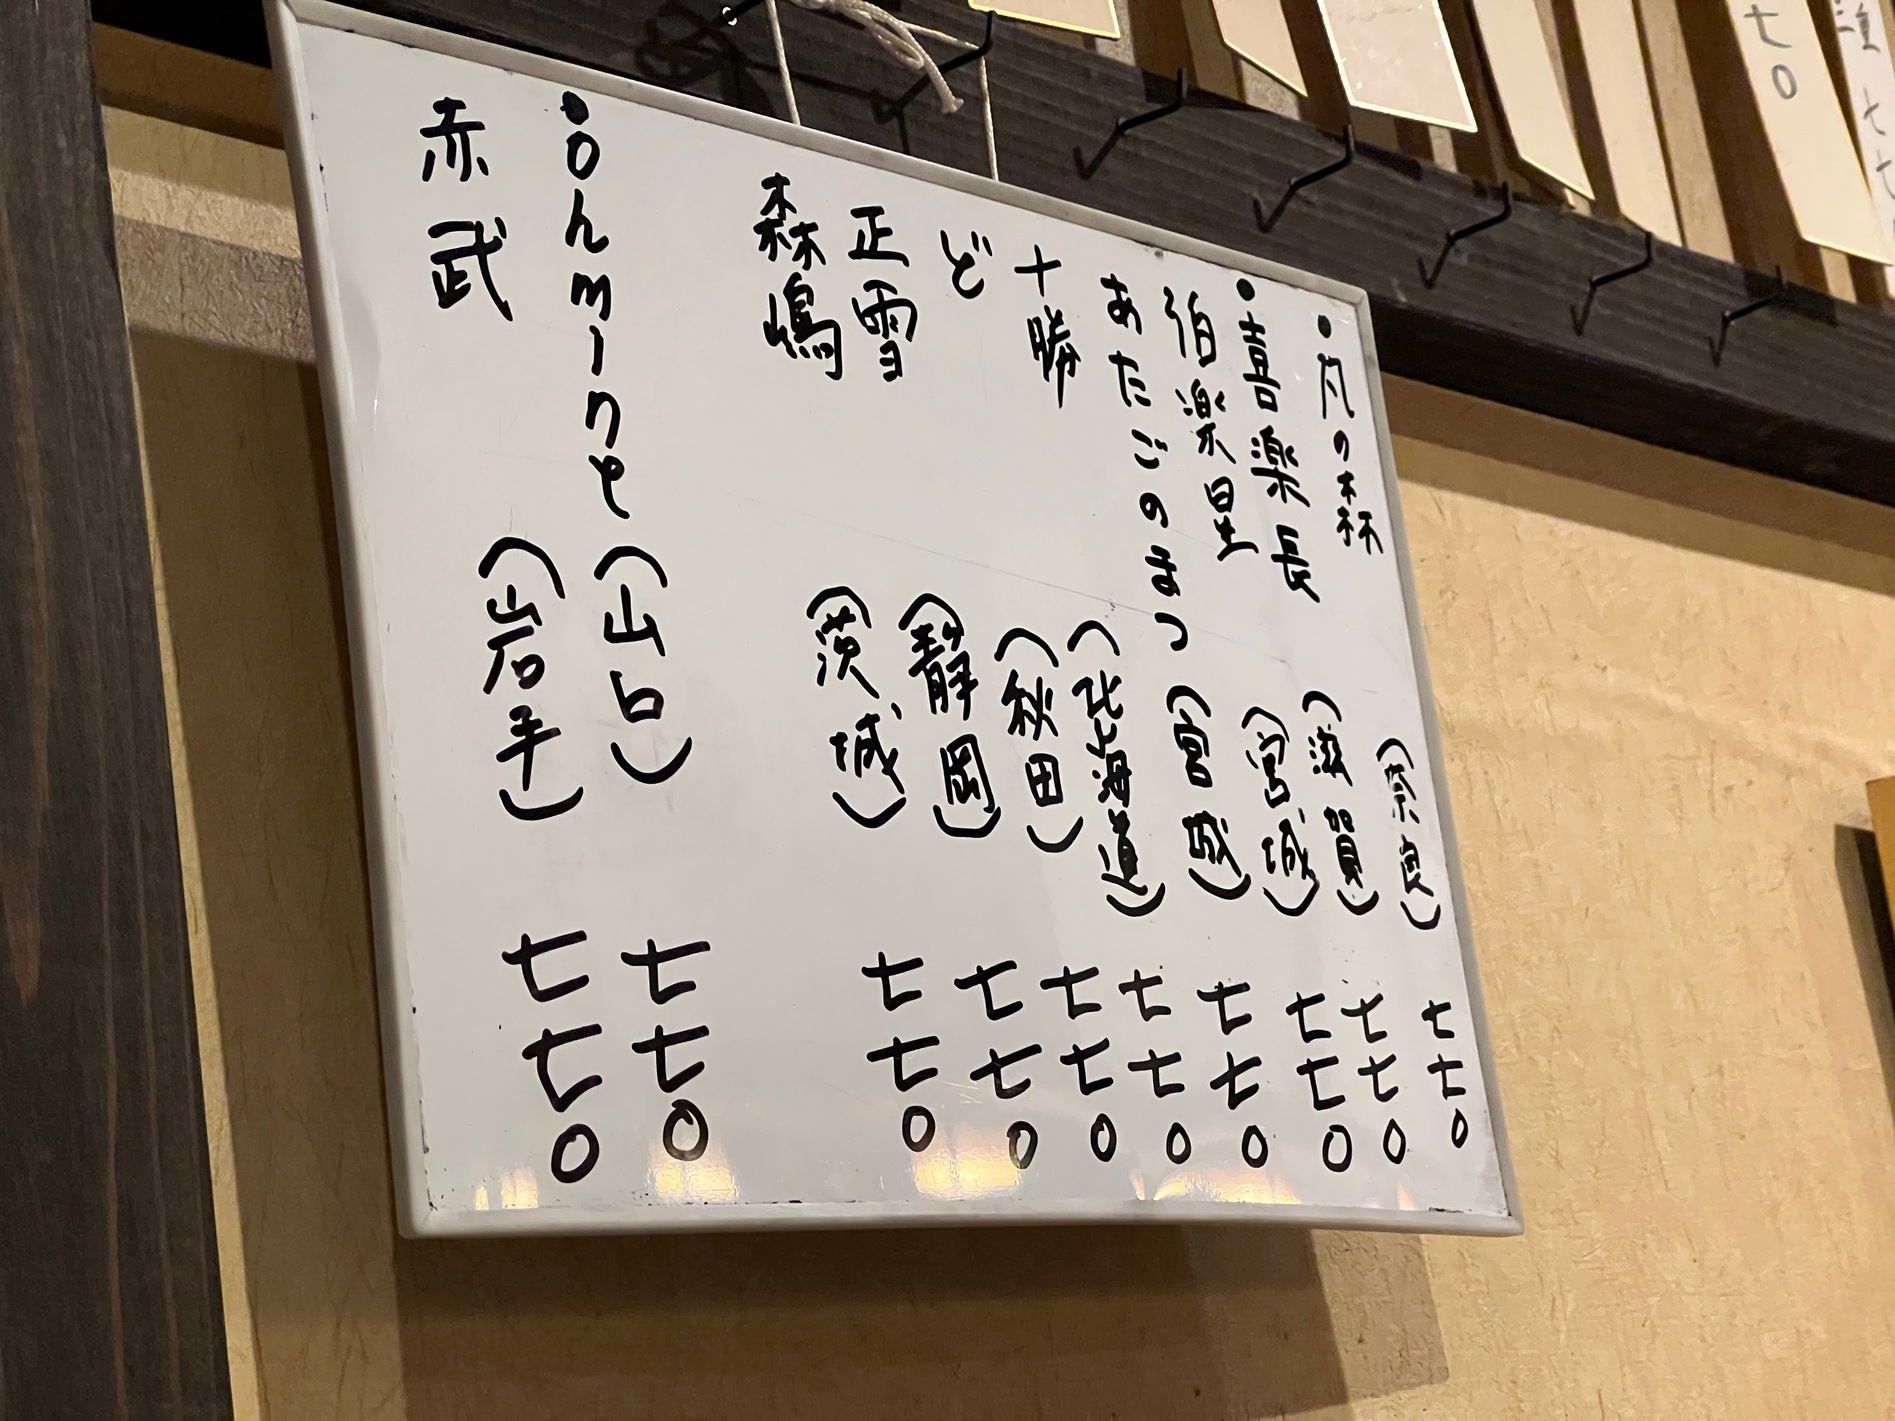 ・風の森 (奈良) 七七0
・喜楽長 (滋賀) 七七0
伯楽星 (宮城) 七七0
あたごのまつ (宮城) 七七0
十勝 (北海道) 七七0
ど (秋田) 七七0
正雪 (静岡) 七七0
森嶋 (茨城) 七七0
・Ohmine (山口) 七七0
赤武 (岩手) 七七0
七0
七七